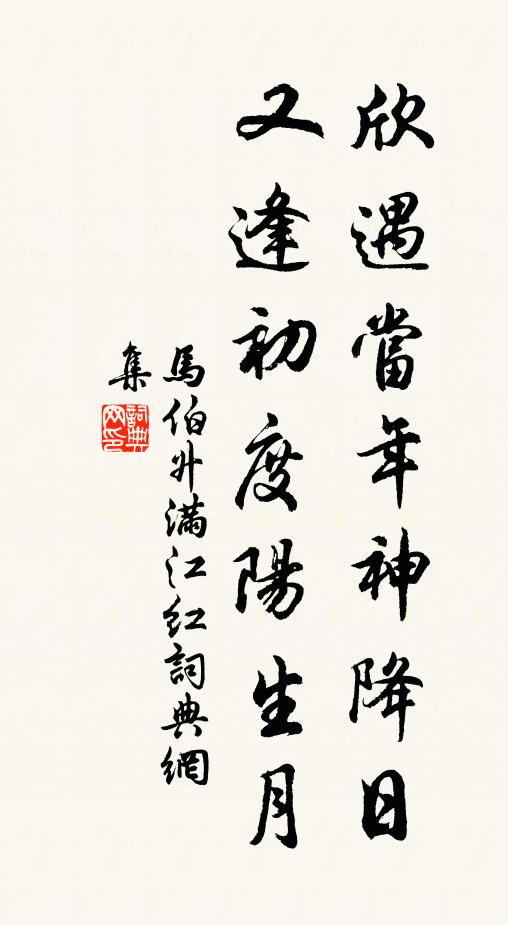 欣遇當年神降日
又逢初度陽生月
馬伯升滿江红詞典網
集
詞典
网印